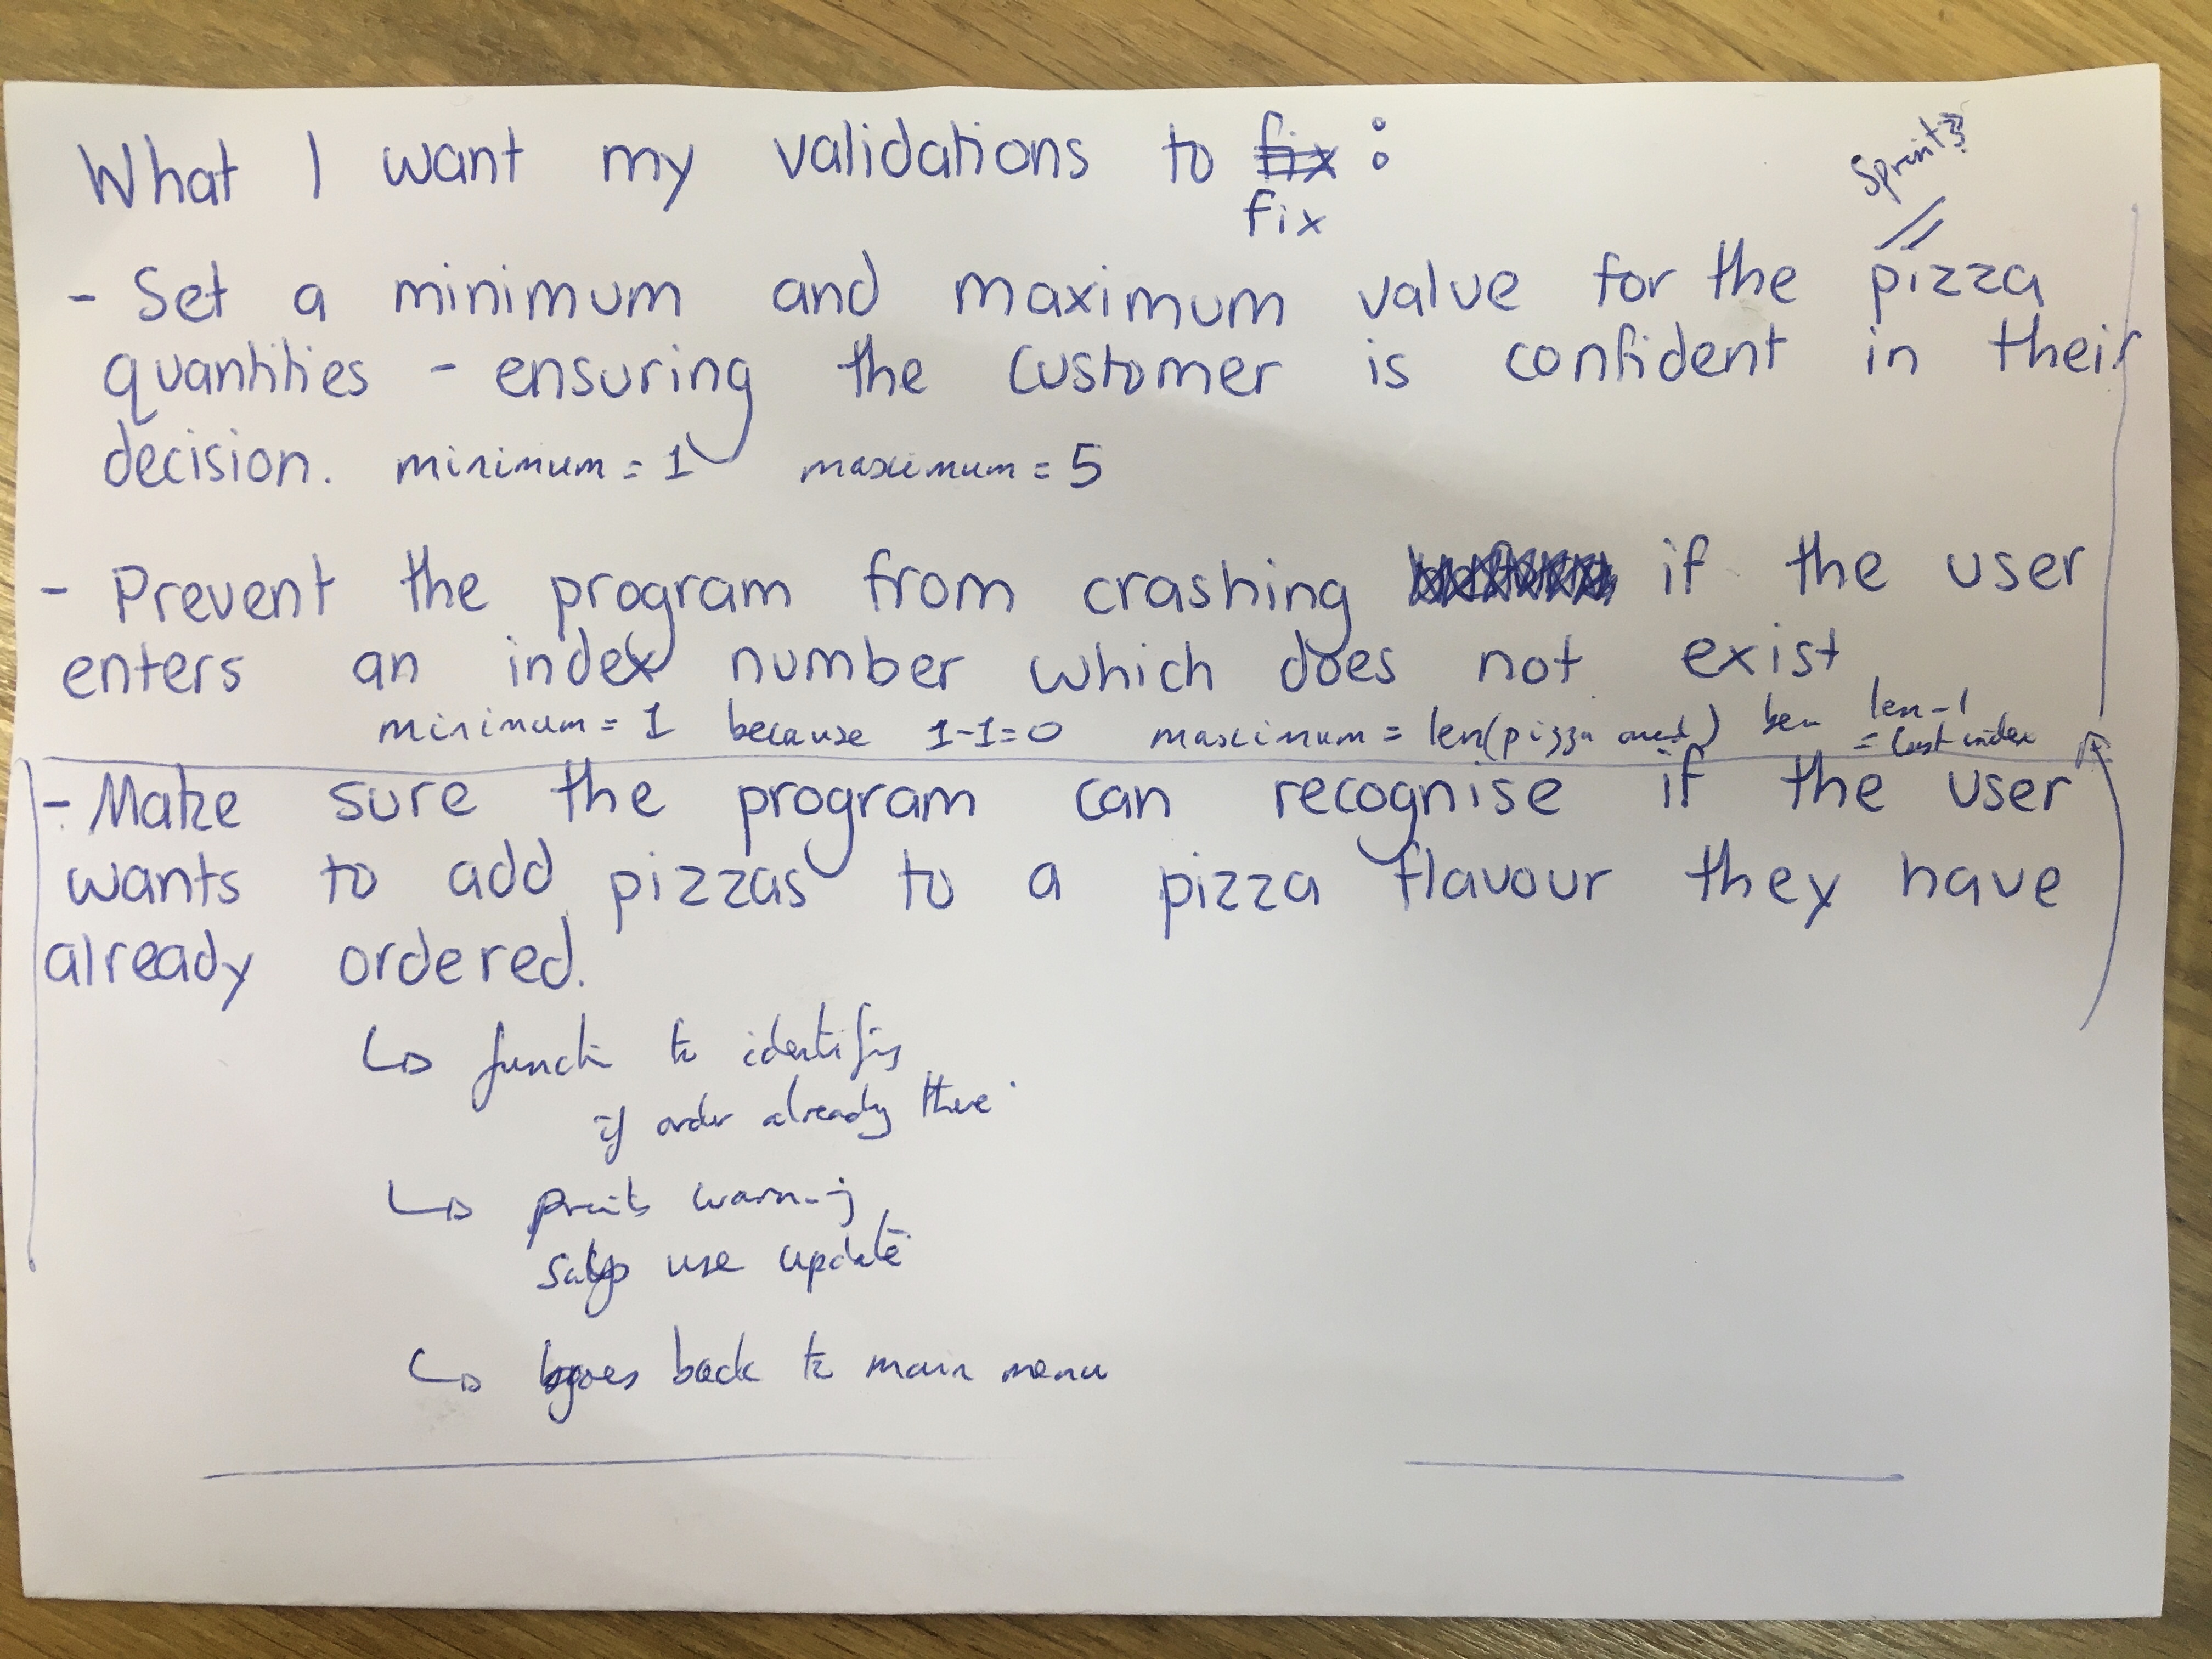 Sprint3
What I want my validations to fix :
fix
- Set a minimum and maximum value for the pizza
quantities - ensuring the customer is confident in their
decision. minimum = 1 maximum = 5
- Prevent the program from crashing if the user
enters an index number which does not exist
minimum = 1 because 1-1=0 maximum = len(pizza ) len-1
= last index
- Make sure the program can recognise if the user
wants to add pizzas to a pizza flavour they have
already ordered.
to identify
if order already there
prints warning
says use update
goes back to main menu